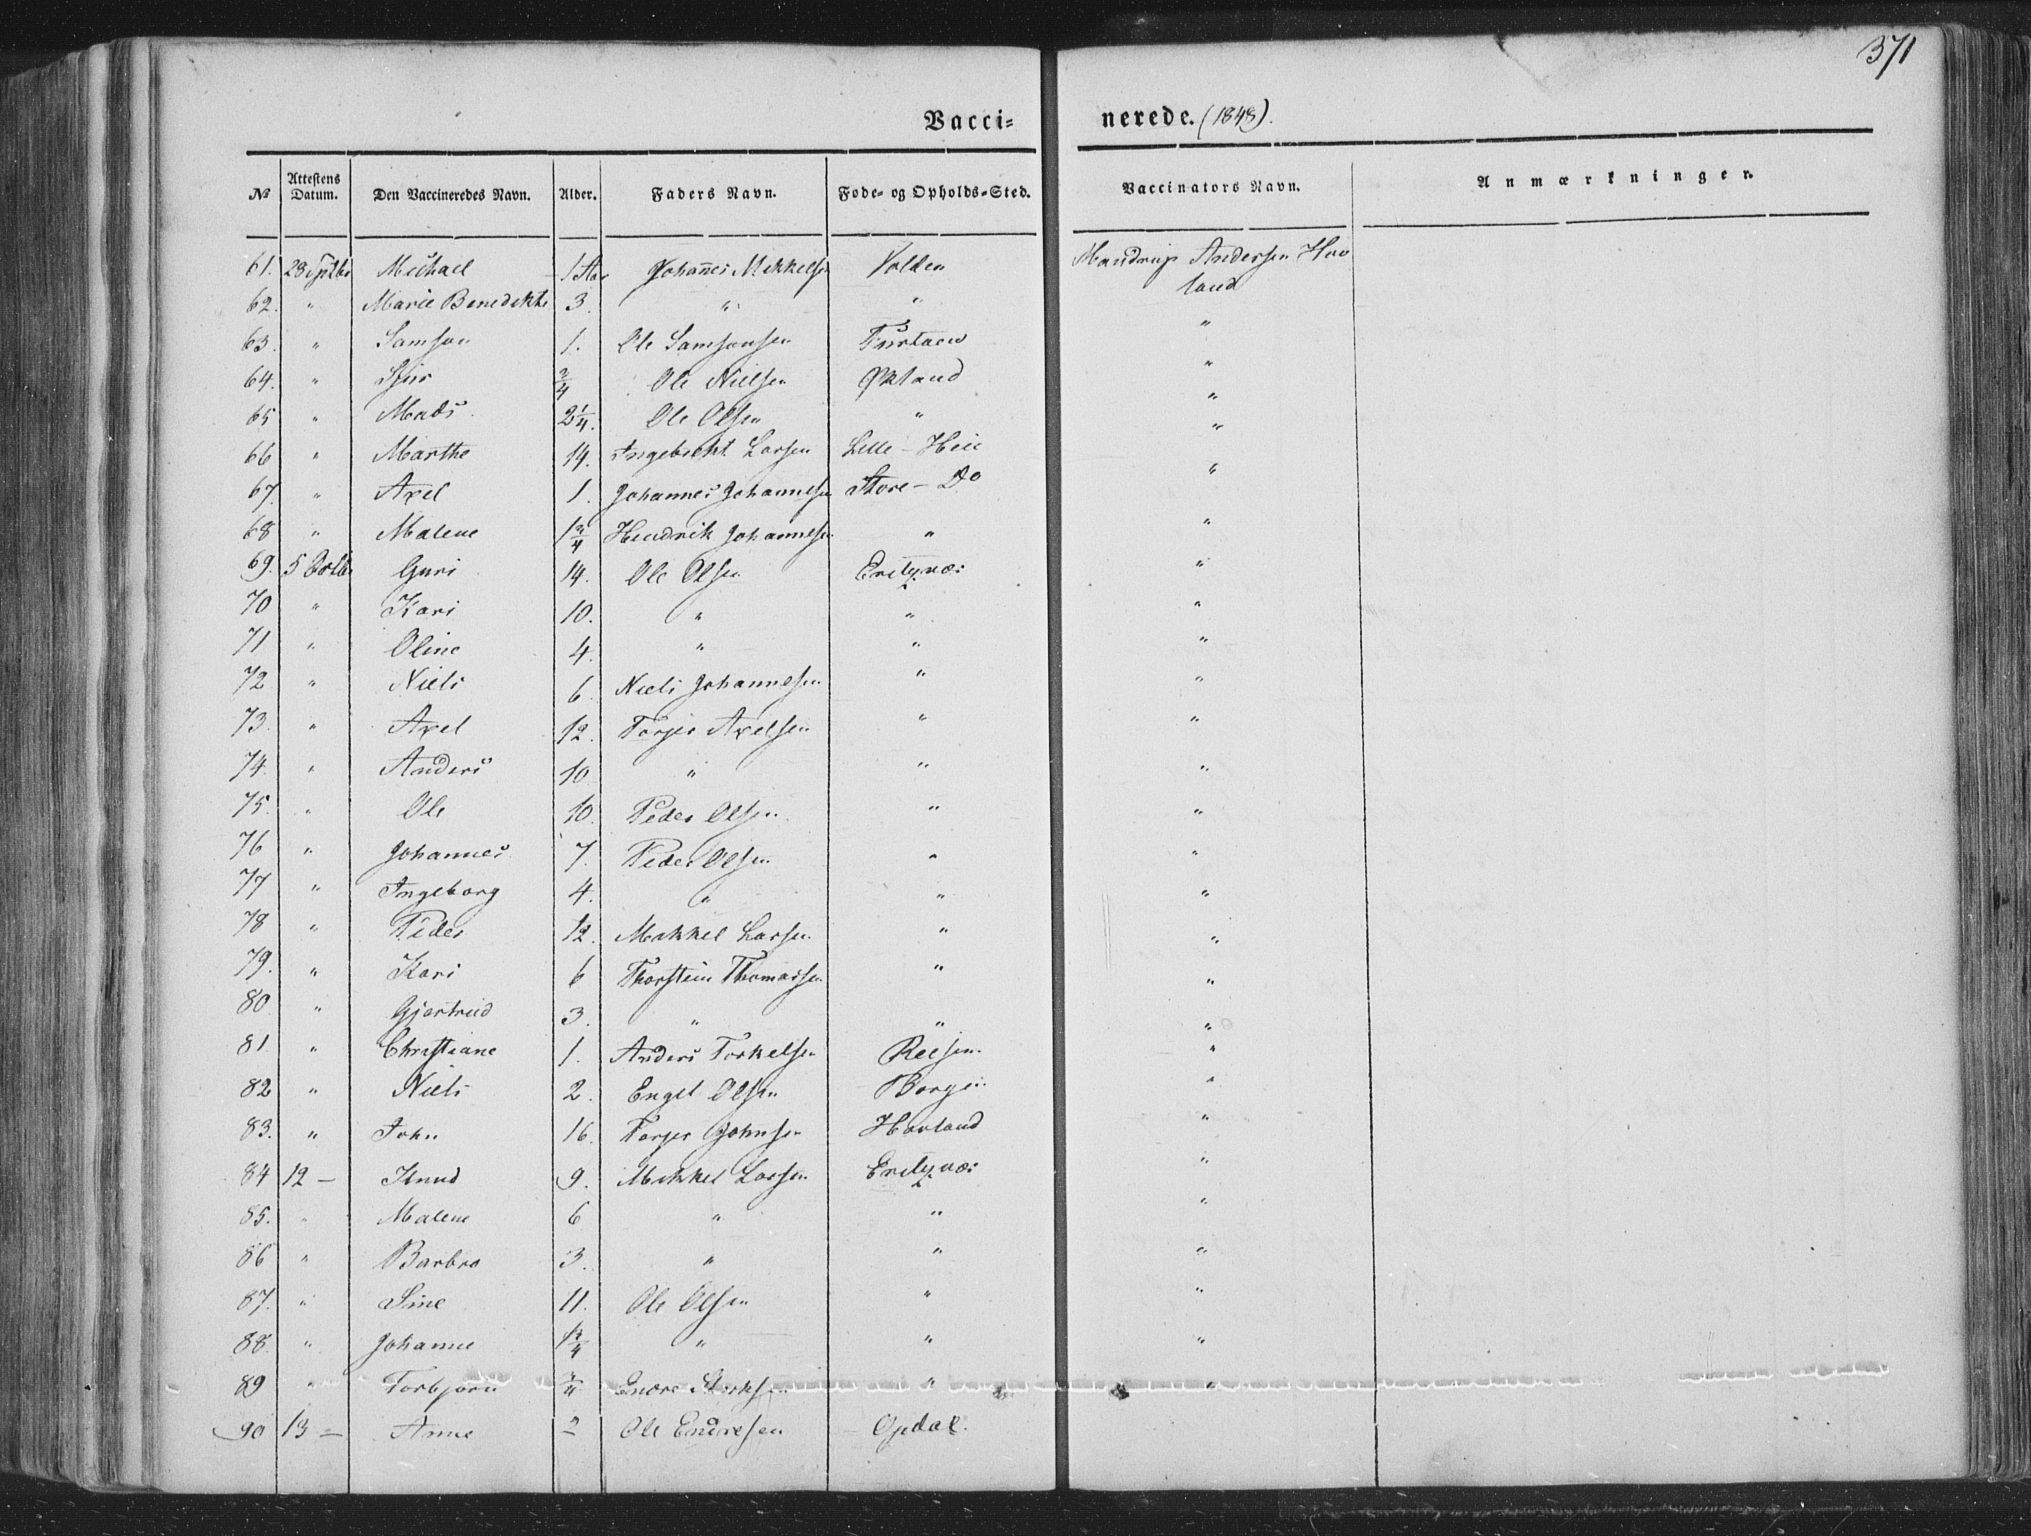 371
Vacci- nerede. (1848).
No Attestens Datum. Den Vaccineredes Navn. Alder. Faders Navn. Føde- og Opholds-Sted. Vaccinators Navn. Anmærkninger.
61. 28 Sptbr Michael 1 Aar Johannes Mikkelsen Volden Mandrup Andersen Hov
land
62. " Marie Benedikte 3. " "
63. " Samson 1. Ole Samsonsen "
64. " Sjur 3/4 Ole Nielsen Økland "
65 " Mads 2 1/4. Ole Olsen " "
66 " Marthe 14. Ingebrikt Larsen Lille - Heie "
67. " Axel 1. Johannes Johannesen Store - Do "
68 " Malene 1 3/4 Hendrik Johannesen " "
69. 5 Octbr Guri 14. Ole Olsen "
70 " Kari 10. " " "
71 " Oline 4. " " "
72 " Niels 6. Niels Johannesen " "
73. " Axel 12. Torjer Axelsen " "
74. " Anders 10 " " "
75. " Ole 10. Peder Olsen " "
76 " Johannes 7. Peder Olsen " "
77 " Ingeborg 4. " " "
78 " Peder 12. Mikkel Larsen " "
79. " Kari 6 Thorstein Thomassen " "
80. " Gjertrud 3. " " "
81. " Christiane 1. Anders Torkelsen "
82 " Niels 2. Engel Olsen Borgen "
83. " John 16. Torjer Johnsen Hovland "
84 12 - Knud 9. Mikkel Larsen "
85. " Malene 6 " " "
86 " Barbro 3. " " "
87. " Sine 11. Ole Olsen " "
88. " Johanne 1 3/4 " " "
89 " Torbjørn 3/4 Endre " "
90 13 - Anne 2 Ole Endresen Opdal.